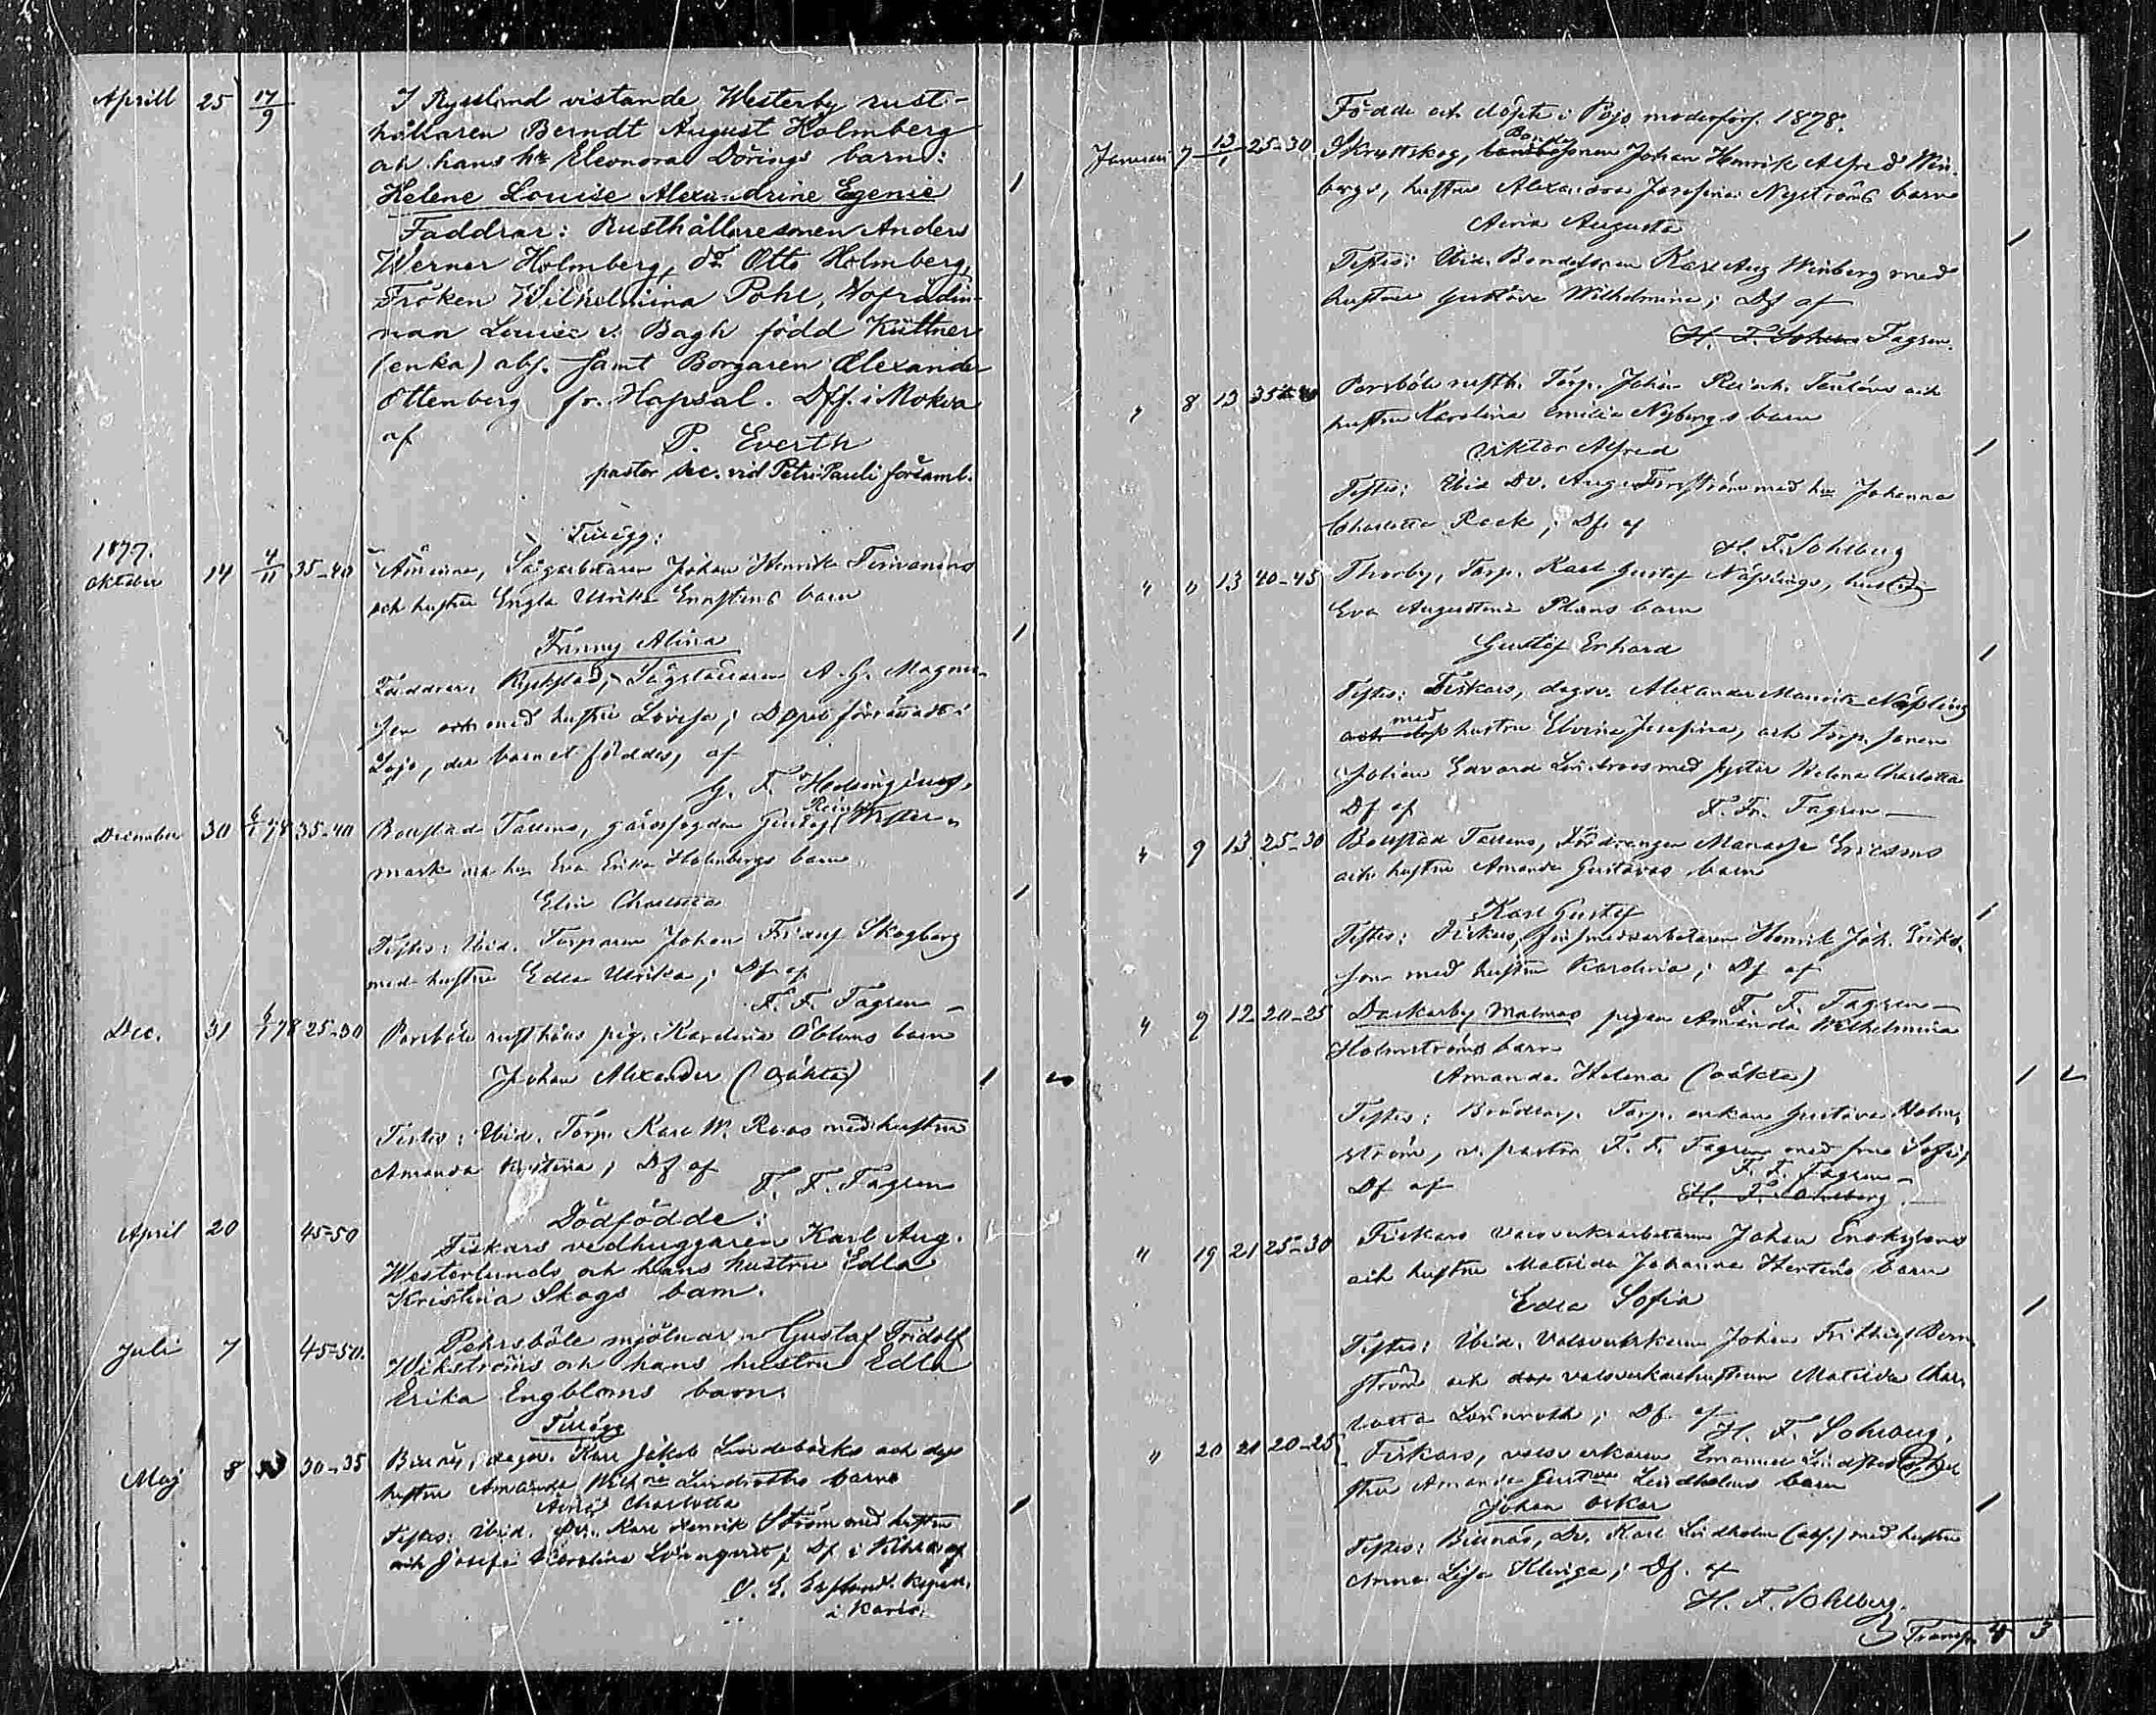 Aprill 25 17/9 I Ryssland vistande Westerby rust-
hållaren Berndt August Holmberg
och hans h:u Eleonora Dörings barn:
Helene Louise Alexandrine Egenie 1
Faddrar: Rusthållaresonen Anders
Werner Holmberg, d:o Otto Holmberg,
Fröken Wilhelmina Pohl, Hofrådin-
nan Louise v. Bagh född Küttner
(enka) abs. samt Borgaren Alexander
Ottenberg fr. Hapsal. Dff. i Mokva
af P. Everth
pastor sec. vid Petri-Pauli församl.
Tillägg:
1877.
Oktober 14 4/11 35-40 Åminne, Sågarbetaren Johan Henrik
och hustru Engla Ulrika barn
Fanny Alina 1
Faddrar: A. G. Magnus-
sen med hustru Lovisa; Dopet förrättadt i
Lojo, der barnet föddes, af
G. F. Helsingius,
December 30 6/1 78 35-40 Bollstad Tallmo, gårdsfogden Gustaf Reinh. Wester-
mark och h:u Eva Erika Holmbergs barn
Elin Charlotta 1
Testes: Ibid. Torparen Johan Fridolf Skogberg
med hustru Edla Ulrika; Df af
F. F. Fagren
Dec. 31 6/1 78 25-30 Persböle rusthålls pig. Karolina Öbloms barn
Johan Alexander (oäkta) 1
Testes: Ibid. Torp. Karl W. Roos med hustru
Amanda Kristina; Df af F. F. Fagren
Dödfödde:
April 20 45-50 Fiskars vedhuggaren Karl Aug.
Westerlunds och hans hustru Edla
Kristina Skogs barn.
Juli 7 45-50. Pehrsböle mjölnaren Gustaf Fridolf
Wikströms och hans hustru Edla
Erika Engbloms barn.
Tillägg
Maj 8 30-35 Billnäs, dagsv. Karl Jakob Lindebäcks och dess
hustru Amanda Wilh:na Lindroths barn
Charlotta 1
Testes: Ibid. Dr. Karl Henrik Ström med hustru
och Josefa Karolina Lönnqvist; Df i af
i Karis.
Födde och döpte i Pojo moderförs. 1878.
Januari 7 13/1 25-30 Skrittskog, Bondesonen Johan Henrik Alfred Win-
bergs, hustrus Alexandra Josefina Nyströms barn
Augusta 1
Testes: Ibid. Bondesonen Karl Aug Winberg med
hustru Gustava Wilhelmina; Df af
Fagren.
" 8 13 35 40 Persböle rusth. Torp. Johan Reinh. och
hustru Karolina Emilia Nybergs barn
Viktor Alfred 1
Testes: Ibid Dr. Aug. Forsström med h:u Johanna
Charlotta Rock; Df af
H. F. Sohlberg
" " 13 40-45 Thorby, Torp. Karl Gustaf Näplings, hustru
Eva Augustina Plans barn
Gustaf Erhard 1
Testes: Fiskars, dagsv. Alexander Mauritz Näpling
med hustru Elvina Josefina, och Torp. sonen
Johan Edvard Lindroos med syster Helena Charlotta
Df af F. Fr. Fagren
" 9 13 25-30 Bollstad Tallmo, Manasse Ericsons
och hustru Amanda Gustavas barn
Karl Gustaf 1
Testes: Fiskars, Henrik Joh. Eriks-
son med hustru Karolina; Df af
F. F. Fagren
" 9 12 20-25 Daskarby Malmas pigan Amanda Wilhelmina
Holmströms barn
Amanda Helena (oäkta) 1
Testes: Torp. enkan Gustava Holm-
ström, v. pastor F. F. Fagren med fru Sofi;
Df af F. F. Fagren
H. F. Sohlberg
" 19 21 25-30 Fiskars valsverksarbetaren Johan Enskylens
och hustru Matilda Johanna Herténs barn
Edla Sofia 1
Testes: Ibid. Valsverkskarlen Johan Frithiof Bern-
ström och valsverkskarlhustrun Matilda Char-
lotta Lönnroth; Df af
H. F. Sohlberg,
" 20 21 20-25 Fiskars, valsverkaren Emanuel
Amanda Lindholms barn
Johan Oskar 1
Testes: Billnäs, Dr. Karl Lindholm (abs.) med hustru
Anna Lisa Klinga; Df. af
H. F. Sohlberg.
Transp. 4 3